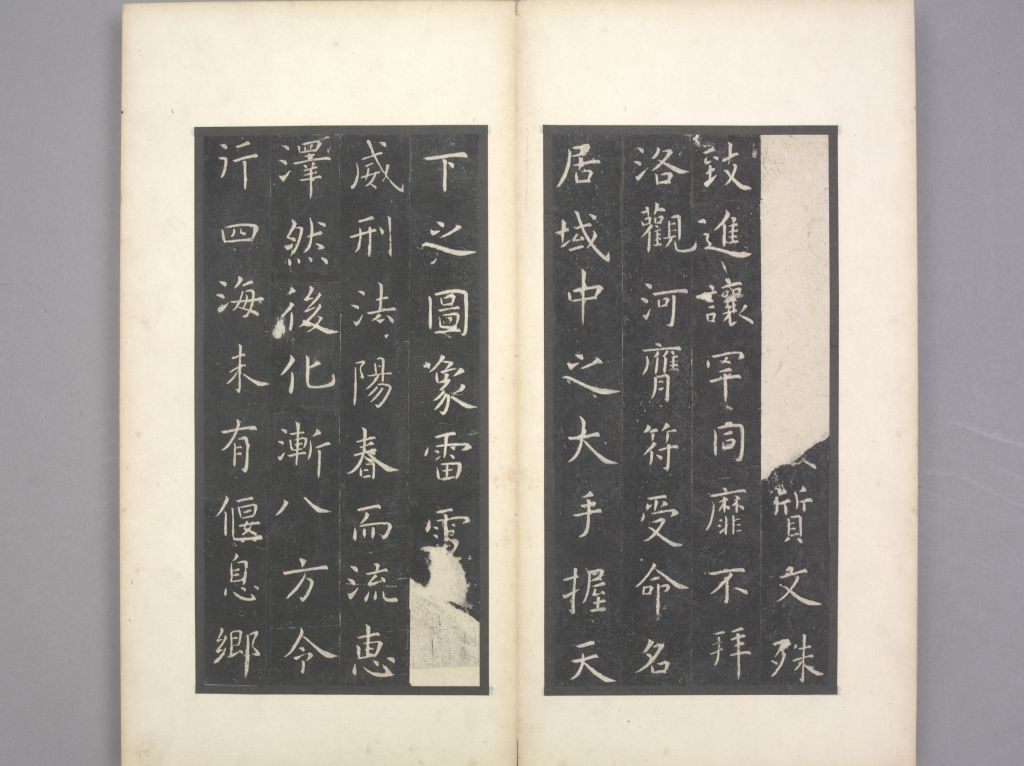 質文殊
致進讓罕同靡不拜
洛觀河膺符受命名
居域中之大手握天
下之圖象雷電
威刑法陽春而流恵
澤然後化漸八方令
行四海未有偃息鄉